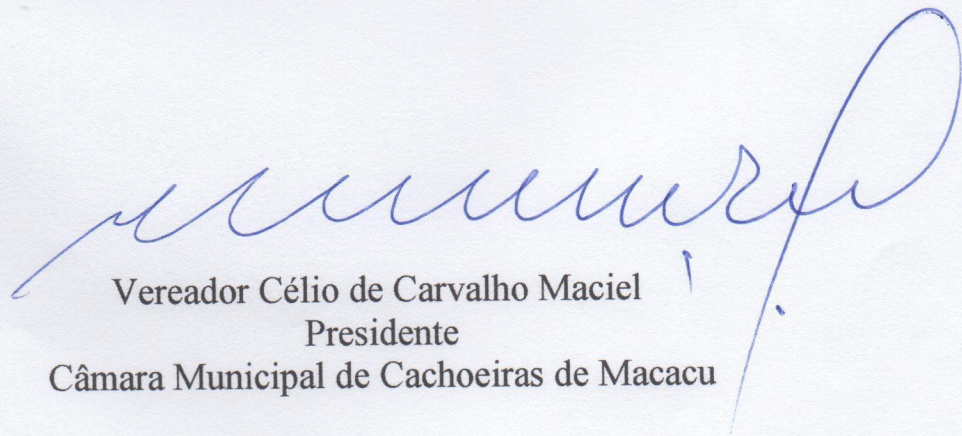 Vereador Célio de Carvalho Maciel
Presidente
Câmara Municipal de Cachoeiras de Macacu